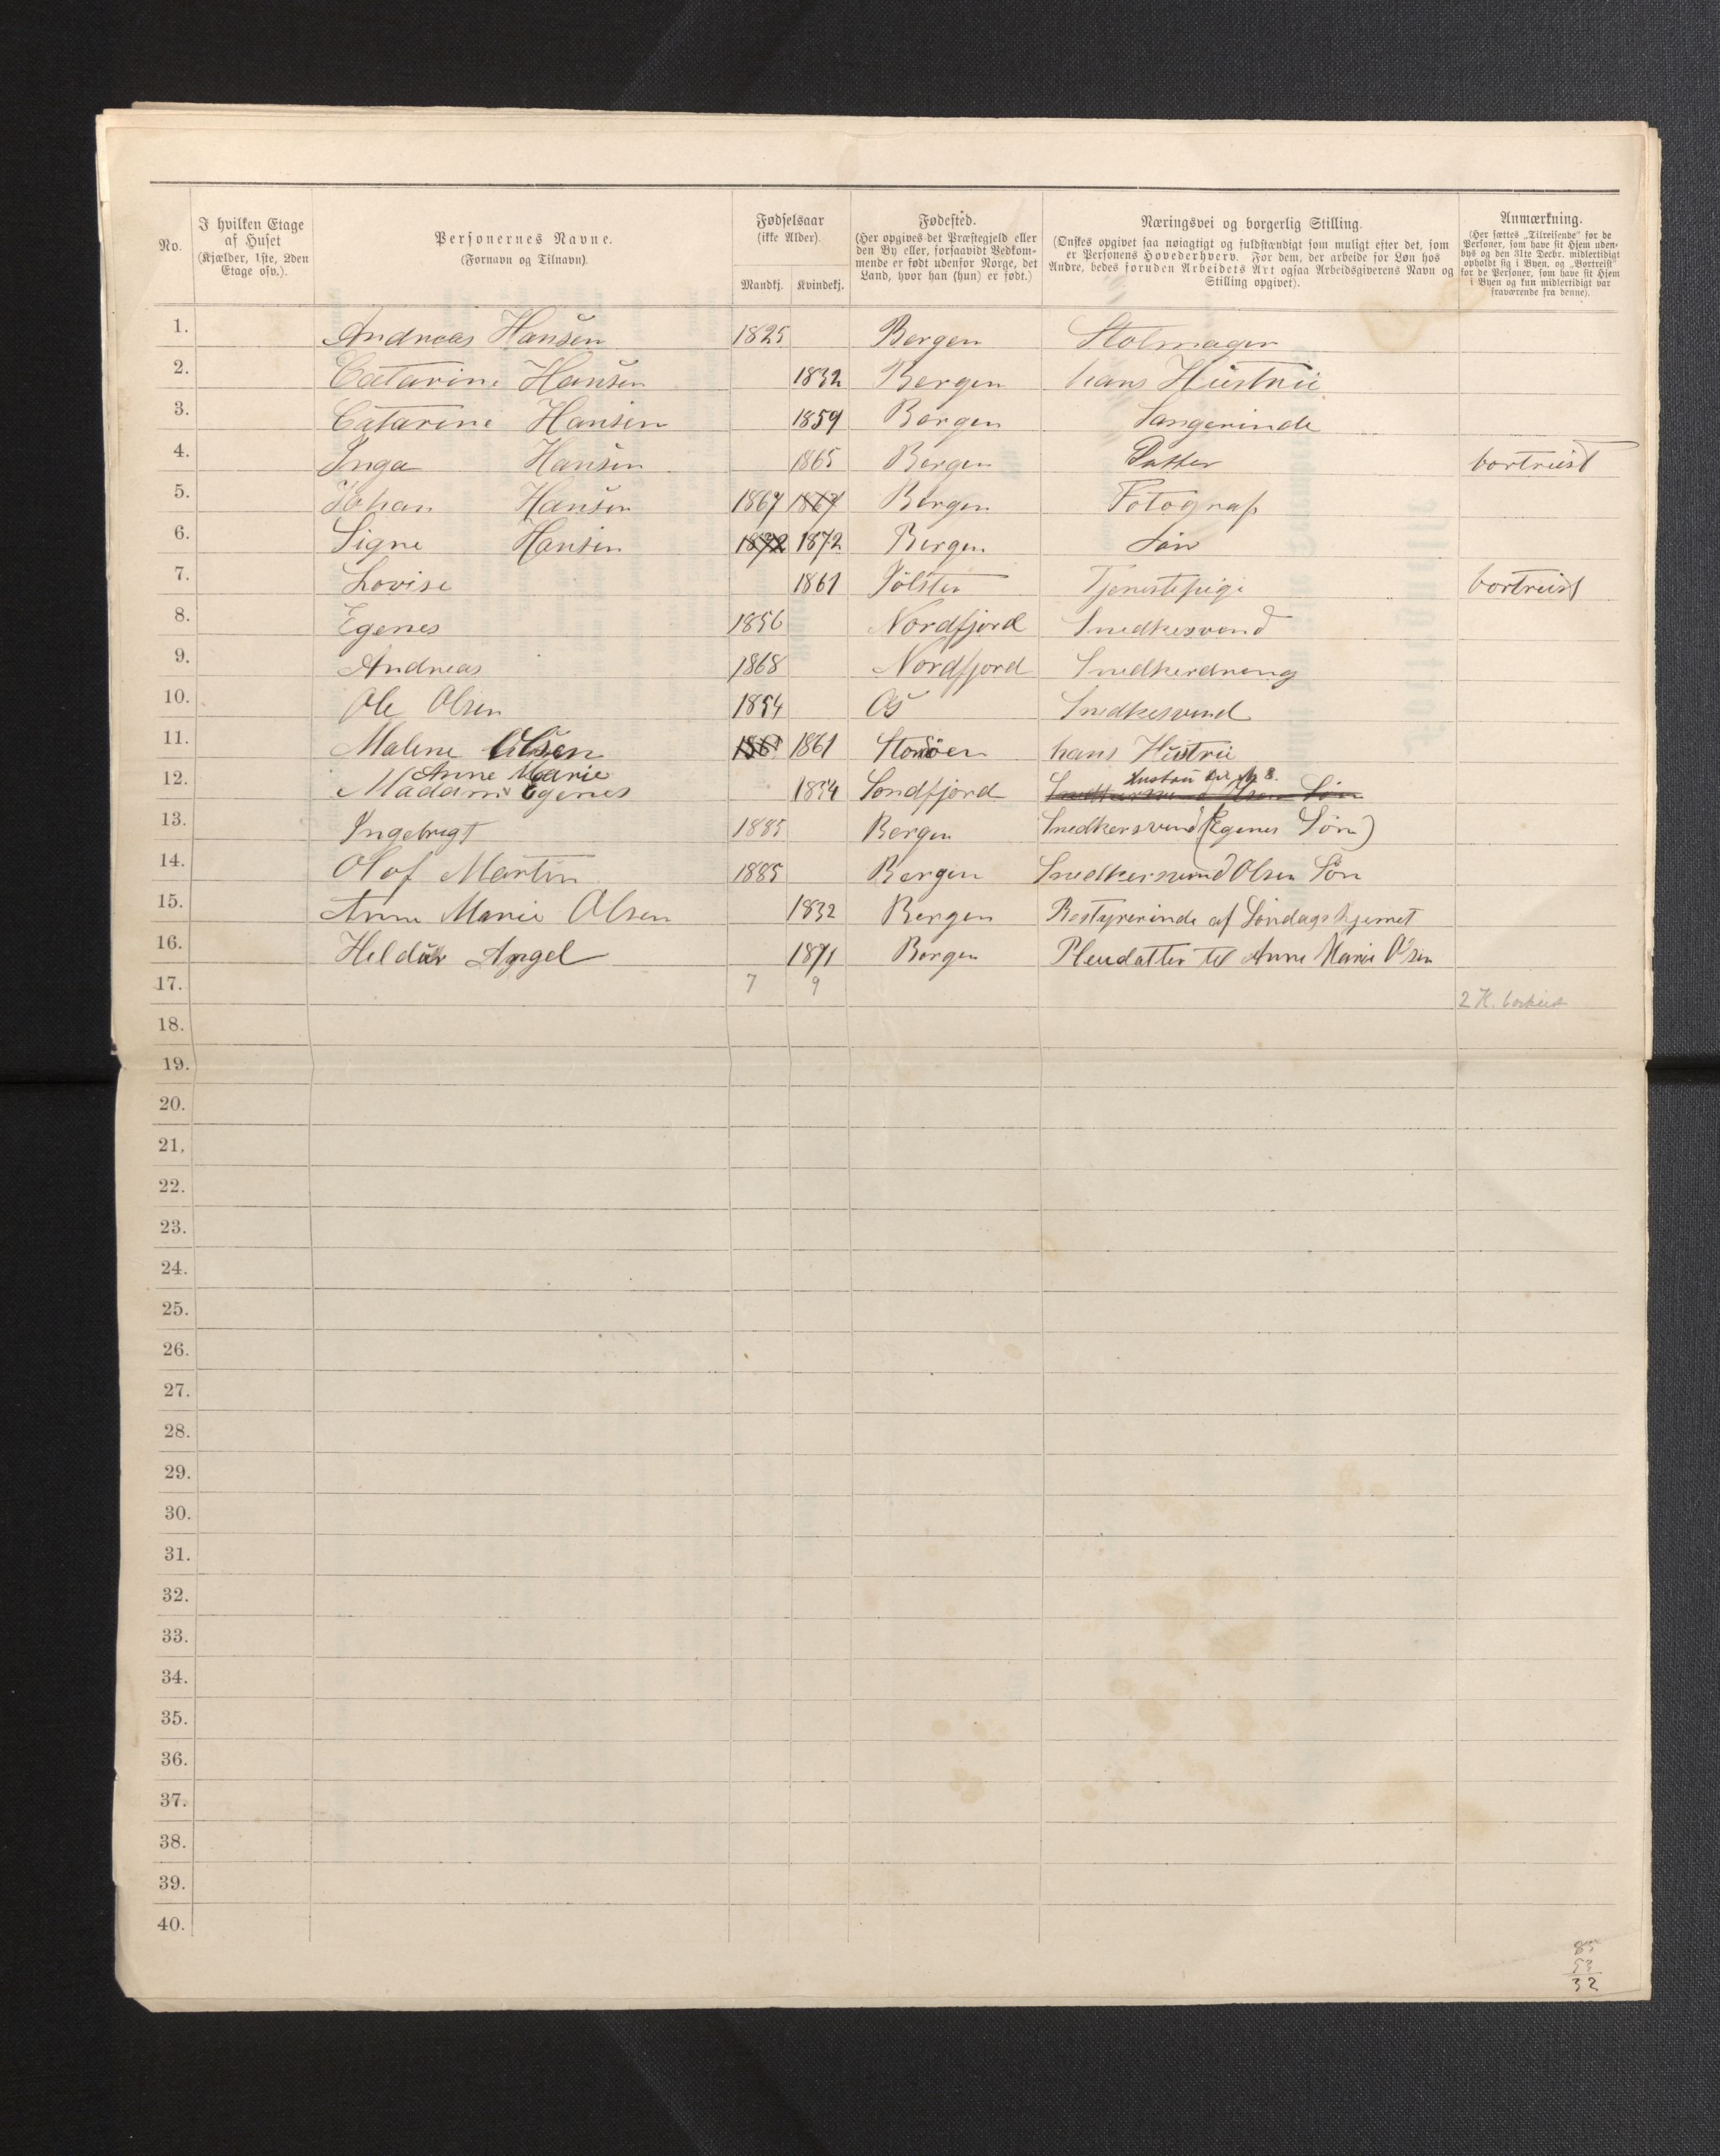 No.
I hvilken Etage
af Huset
(Kjælder, 1ste, 2den
Etage osv.).
Personernes Navne.
(Fornavn og Tilnavn).
Fødselsaar
(ikke Alder).
Mandkj. Kvindekj.
Fødested.
(Her opgives det Præstegjeld eller
den By eller, forsaavidt Vedkom-
mende er født udenfor Norge, det
Land, hvor han (hun) er født.)
Næringsvei og borgerlig Stilling.
(Ønskes opgivet saa nøiagtigt og fuldstændigt som muligt efter det, som
er Personens Hovederhverv. For dem, der arbeide for Løn hos
Andre, bedes foruden Arbeidets Art ogsaa Arbeidsgiverens Navn og
Stilling opgivet).
Anmærkning.
(Her sættes „Tilreisende" for de
Personer, som have sit Hjem uden-
bys og den 31te Decbr. midlertidigt
opholdt sig i Byen, og „Bortreist"
for de Personer, som have sit Hjem
i Byen og kun midlertidigt var
fraværende fra denne).
1. Andreas Hansen 1825 Bergen Stolmager
2. Catarine Hansen 1832 Bergen hans Hustru
3. Catarine Hansen 1859 Bergen Sangerinde
4. Inga Hansen 1865 Bergen Datter bortreist
5. Johan Hansen 1867 1867 Bergen Fotograf
6. Signe Hansen 1872 1872 Bergen
7. Lovise 1861 Jølster Tjenestepige bortreist
8. Egenes 1856 Nordfjord Snedkesvend
9. Andreas 1868 Nordfjord Snedkerdreng
10. Ole Olsen 1854 Os Snedkesvend
11. Malene Olsen 1861 1861 hans Hustru
Anne Marie
12. Madam Egenes 1854 Sondfjord Hustru
13. Ingebrigt 1885 Bergen Snedkersvend (Egenes Søn)
14. Olaf Martin 1885 Bergen Snedkersvend Olsen Søn
15. Anne Marie Olsen 1832 Bergen Bestyrerinde af Søndagshjemet
16. Heldur Angel 1871 Bergen Pleudatter til Anne Marie Olsen
17. 7 9
2 K. bortreist
18.
19.
20.
21.
22.
23.
24.
25.
26.
27.
28.
29.
30.
31.
32.
33.
34.
35.
36.
37.
38.
39.
40.
85
53
32